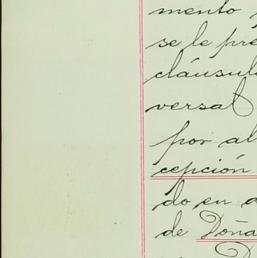 mento
se le pre
cláusul
versal
por al
cepción
do en
de Doña